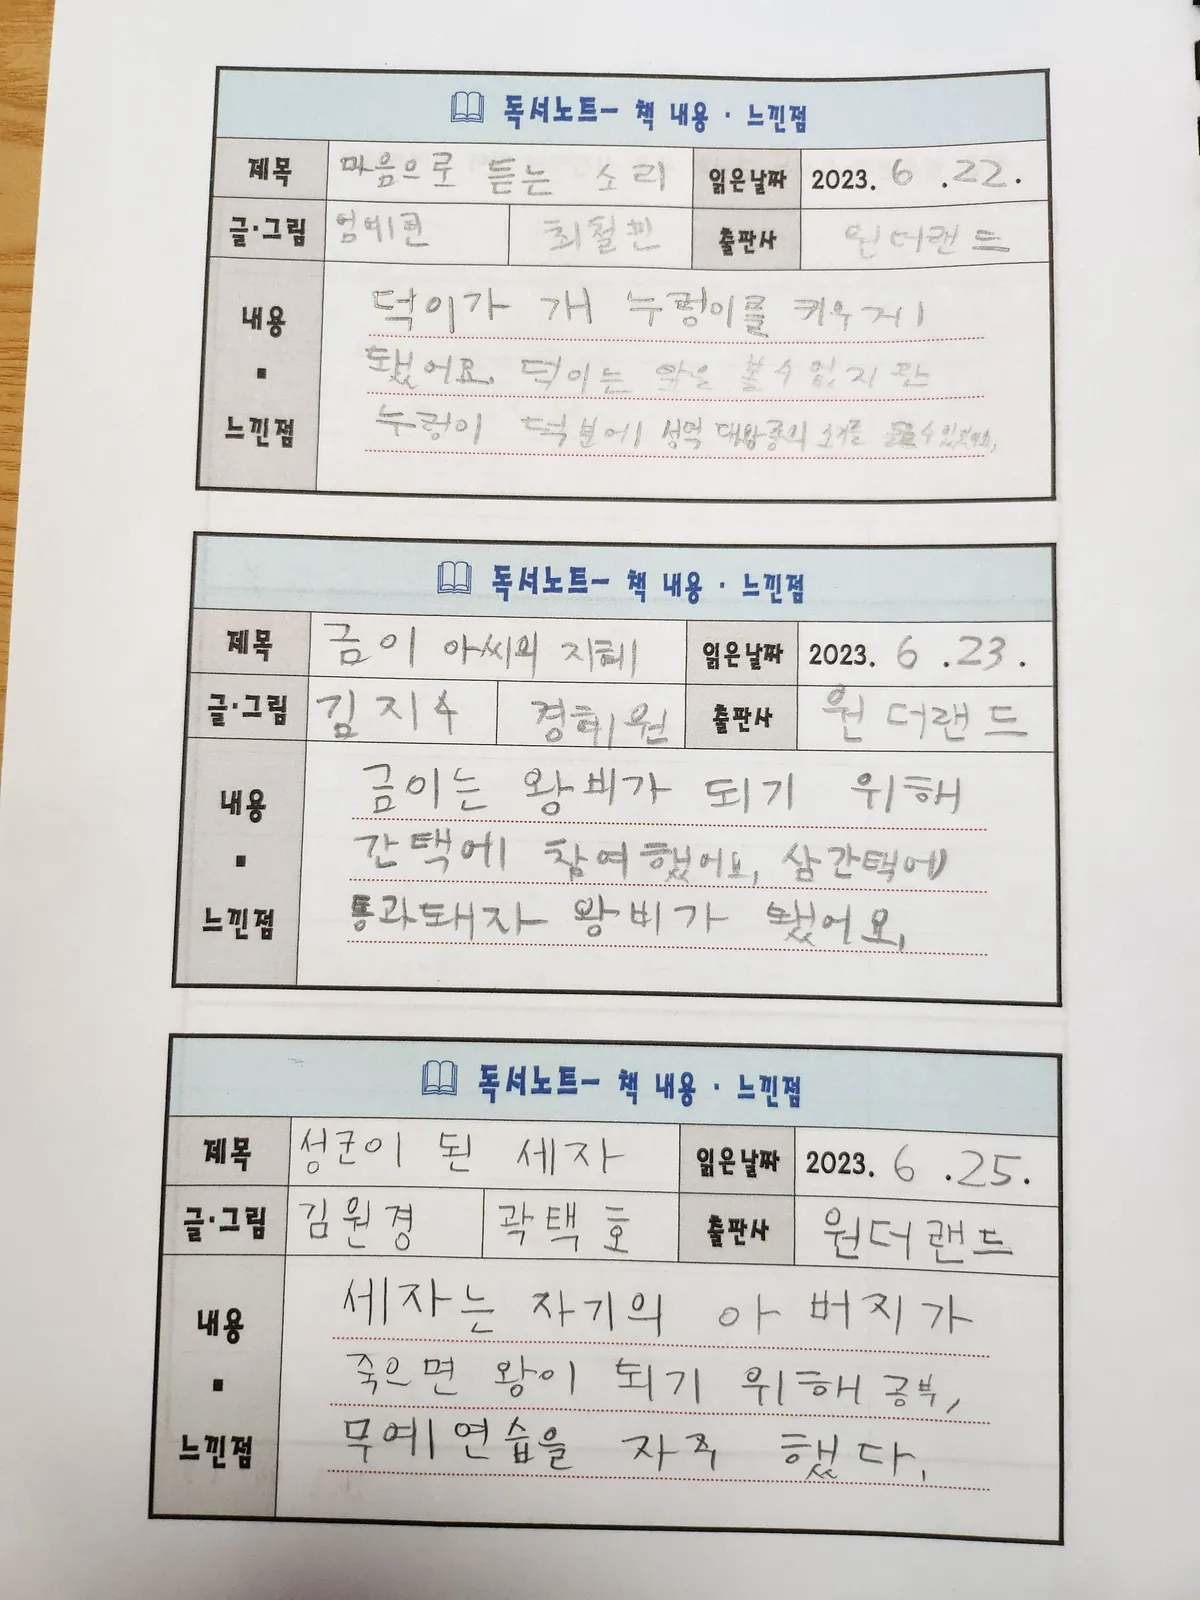 독서노트- 책 내용 · 느낀점
제목 마음으로 듣는 소리 읽은날짜 2023. 6 .22.
글·그림 엄예현 최철민 출판사 원더랜드
내용 · 느낀점
덕이가 개 누렁이를 키우게
됐어요. 덕이는 앞을 볼수 없지만
누렁이 덕분에 성덕 대왕종의 소리를 들을수 있었어요.
독서노트- 책 내용 · 느낀점
제목 금이 아씨의 지혜 읽은날짜 2023. 6 .23.
글·그림 김지수 경혜원 출판사 원더랜드
내용 · 느낀점
금이는 왕비가 되기 위해
간택에 참여했어요. 삼간택에
통과돼자 왕비가 됐어요.
독서노트- 책 내용 · 느낀점
제목 성군이 된 세자 읽은날짜 2023. 6 .25.
글·그림 김원경 곽택호 출판사 원더랜드
내용 · 느낀점
세자는 자기의 아버지가
죽으면 왕이 되기 위해 공부,
무예연습을 자주 했다.